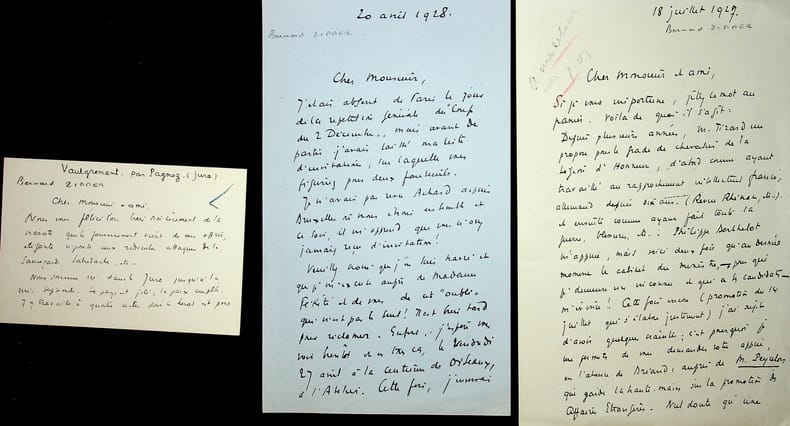 Vaulgrenant. par Pagnoz. (Jura)
Bernard ZIMMER
Cher monsieur et ami.
Nous vous félicitons bien sincèrement de la
croix que le gouvernement vient de vous offrir,
la mi-septembre. Le pays est joli, la paix complète.
J'y travaille à quatre actes dont le héros est pris
20 avril 1928.
Bernard ZIMMER
Cher Monsieur,
J'étais absent de Paris le jour
de la répétition générale du "Coup
du 2 Décembre", mais avant de
partir j'avais laissé ma liste
d'invitations, sur laquelle vous
figuriez pour deux fauteuils.
Je n'avais pas revu Achard depuis
Bruxelles où nous étions ensemble et
ce soir, il m'apprend que vous n'avez
jamais reçu d'invitation!
Veuillez croire que j'en suis navré et
que je m'excuse auprès de madame
et de vous de cet "oubli"
qui n'est pas le seul! Il est bien tard
pour réclamer. Enfin, j'espère vous
voir bientôt et en tous cas, le Vendredi
27 avril à la centième de Oiseaux,
à l'Atelier. Cette fois, j'enverrai
18 juillet 1927.
Bernard ZIMMER
Cher Monsieur et ami,
Si je vous importune, jetez ce mot au
panier. Voilà de quoi il s'agit:
Depuis plusieurs années, M. Tirard me
propose pour le grade de chevalier de la
Légion d'Honneur, d'abord comme ayant
travaillé au rapprochement intellectuel franco-
allemand depuis dix ans. (Revue Rhénane, etc..)
et ensuite comme ayant fait toute la
guerre, blessure, etc.. Philippe Berthelot
m'appuie, mais voici deux fois qu'au dernier
moment le cabinet du ministre, pour qui
je demeure un inconnu et qui a 4 candidats
m'évince! Cette fois encore (promotion du 14
juillet qui s'élabore justement) j'ai sujet
d'avoir quelque crainte; c'est pourquoi je
me permets de vous demander votre appui,
en l'absence de Briand, auprès de M. Peycelon
qui garde la haute main sur la promotion des
Affaires Etrangères. Nul doute qu'une